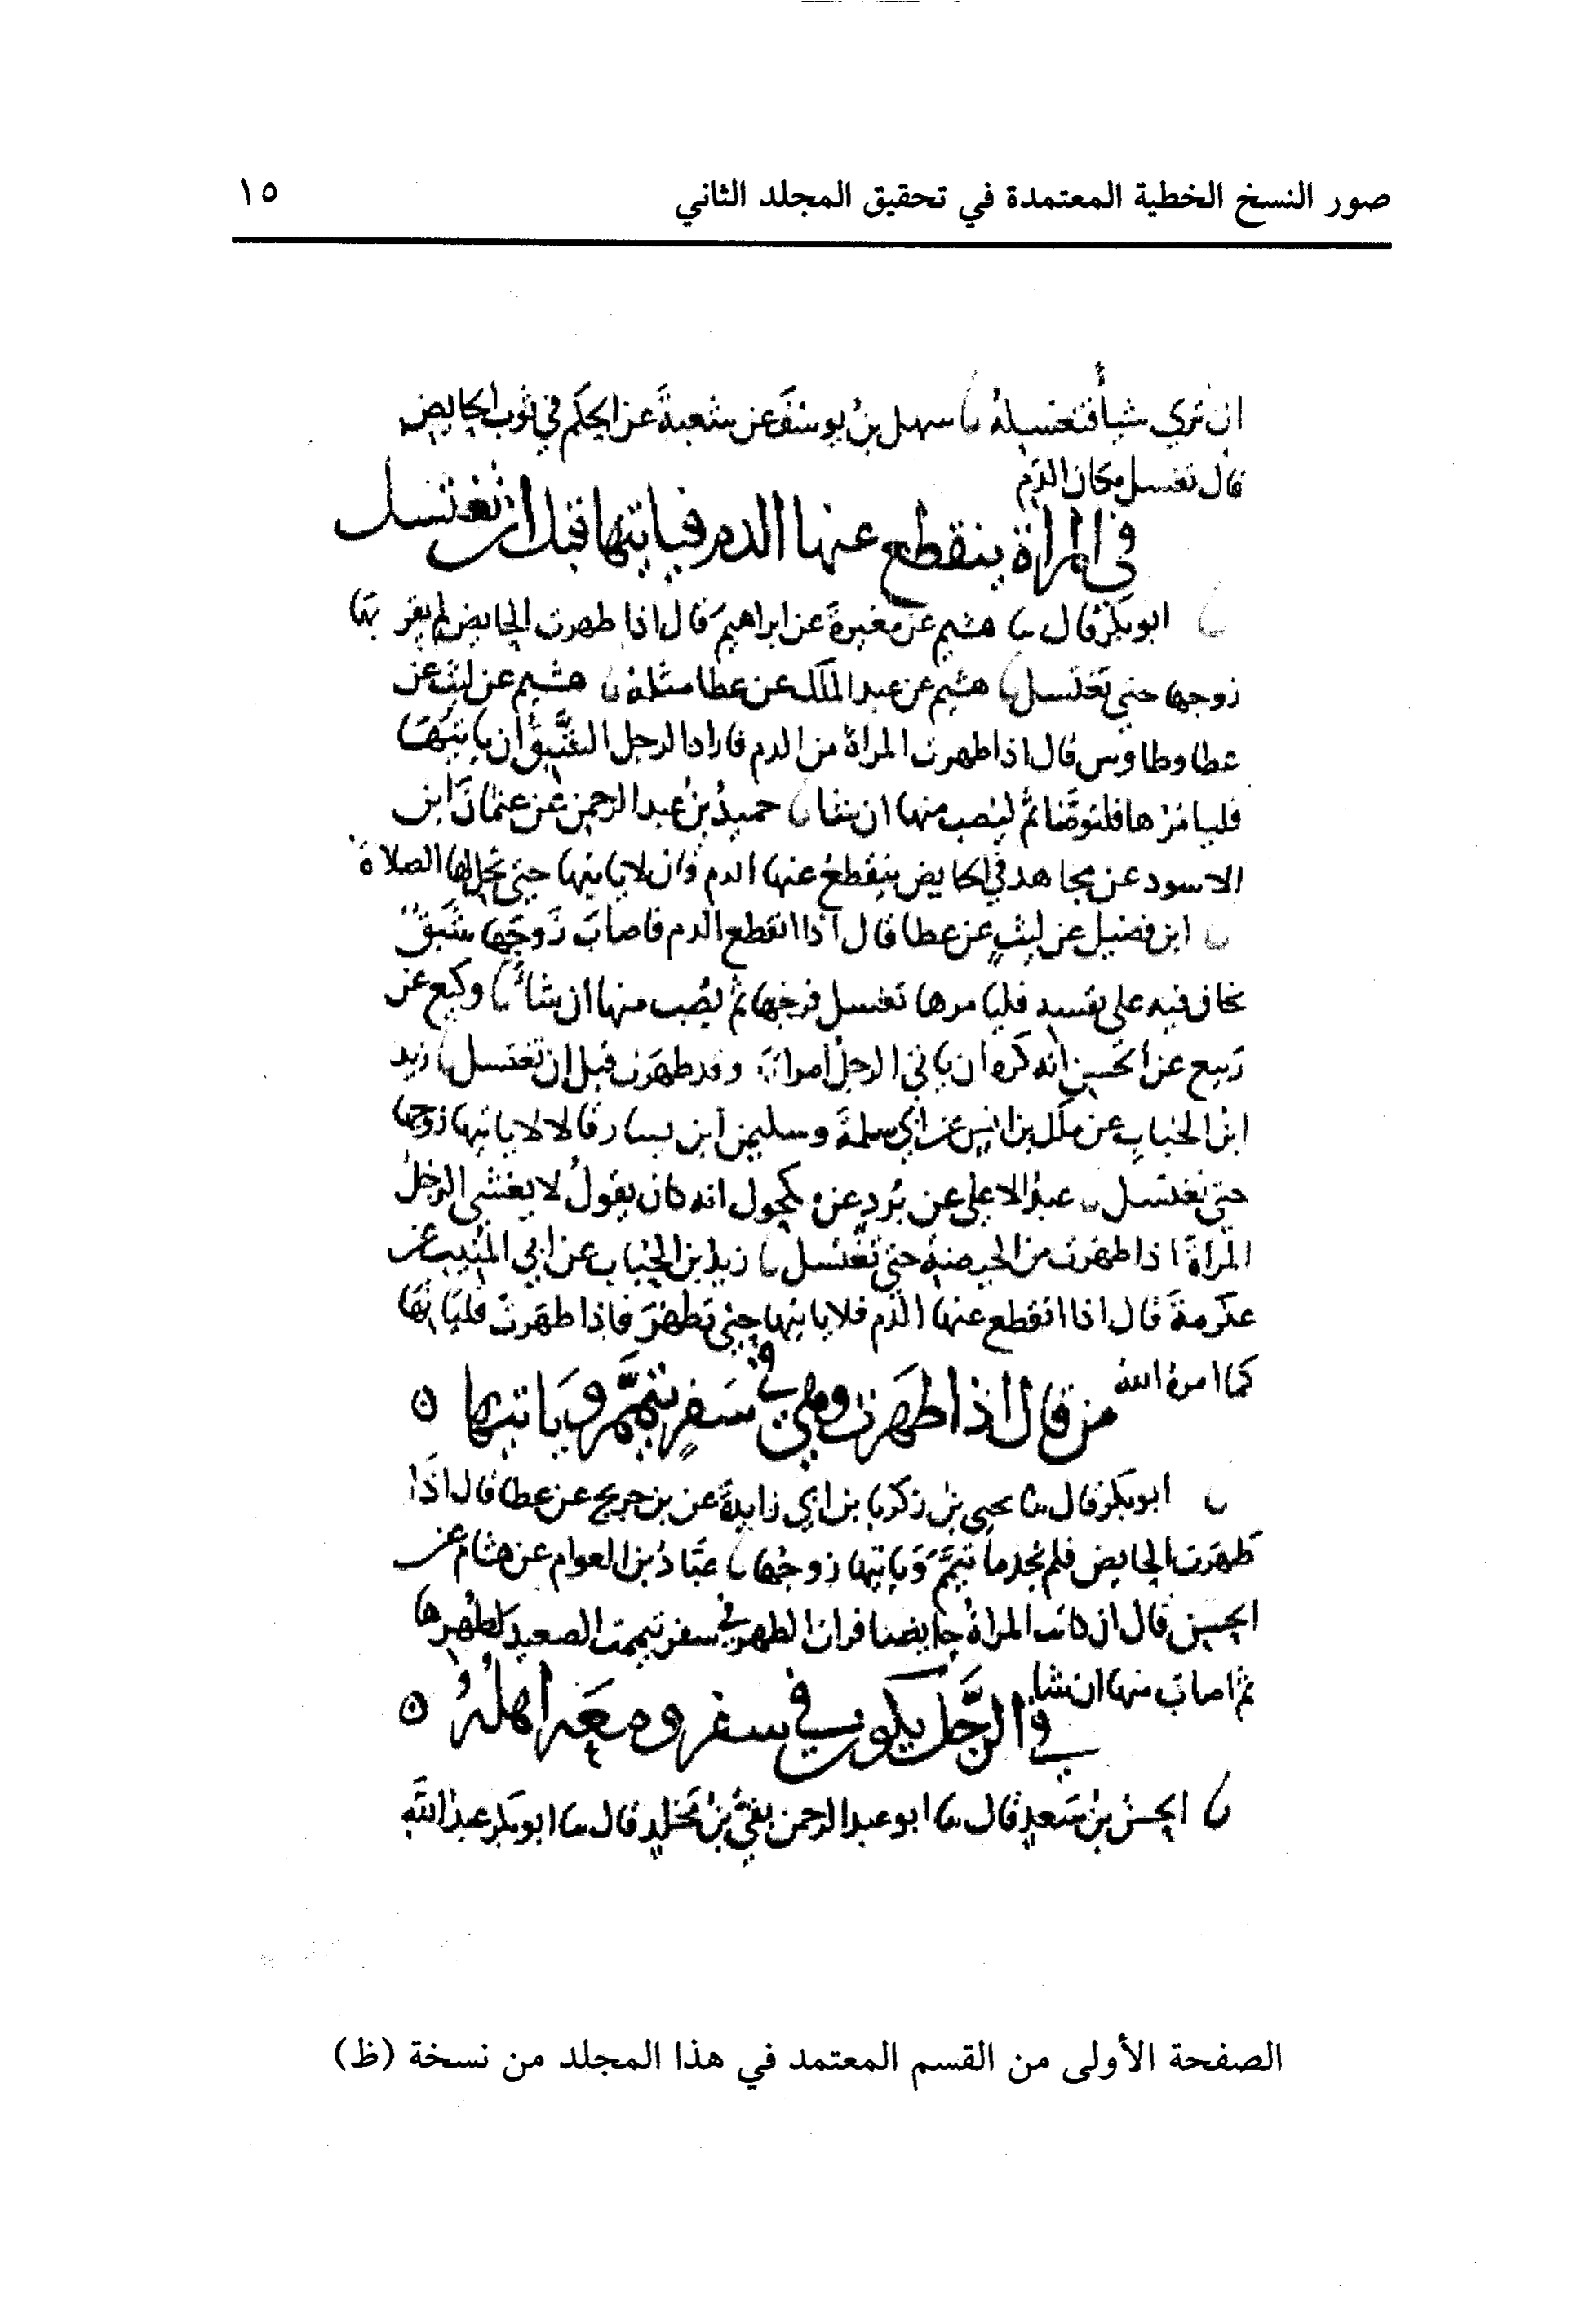 صور النسخ الخطية المعتمدة في تحقيق المجلد الثاني ١٥
ان تري شيأ فتغسله نا سهل بن يوسف عن شعبة عن الحكم في ثوب الحايض
قال تغسل مكان الدم
في المراة ينقطع عنها الدم فياتيها قبل ان تغتسل
نا ابو بكر قال نا هشيم عن مغيرة عن ابراهيم قال اذا طهرت الحايض لم يقربها
زوجها حتى تغتسل نا هشيم عن عبد الملك عن عطا مثله نا هشيم عن ليث عن
عطا وطاوس قال اذا طهرت المراة من الدم فاراد الرجل الشبق أن ياتيها
فليامرها فلتوضا ثم ليصب منها ان شا نا حميد بن عبد الرحمن عن عثمان ابن
الاسود عن مجاهد في الحايض ينقطع عنها الدم قال لا ياتيها حتى تحل لها الصلاة
نا ابن فضيل عن ليث عن عطا قال اذا انقطع الدم فاصاب زوجها شبق
يخاف فيه على نفسه فليامرها تغسل فرجها ثم يصب منها ان شاء نا وكيع عن
ربيع عن الحسن انه كره ان ياتي الرجل امراته وقد طهرت قبل ان تغتسل نا زيد
ابن الحباب عن ملك بن انس عن ابي سلمة وسليمن ابن يسار قالا لا ياتيها زوجها
حتى تغتسل نا عبد الاعلى عن برد عن مكحول انه كان يقول لا يغشى الرجل
المراة اذا طهرت من الحيضة حتى تغتسل نا زيد بن الحباب عن ابي المنيب عن
عكرمة قال اذا انقطع عنها الدم فلا ياتيها حتى تطهر فاذا طهرت فلياتها
كما امره الله
من قال اذا طهرت وهي في سفر تيمم وياتيها ٥
نا ابو بكر قال نا يحيى بن زكريا بن ابي زايدة عن بن جريج عن عطا قال اذا
طهرت الحايض فلم تجد ما تيمم وياتيها زوجها نا عباد بن العوام عن هشام عن
الحسن قال ان كانت المراة حايضا فرات الطهر في سفر تيممت الصعيد لطهرها
ثم اصاب منها ان شا
في الرجل يكون في سفر ومعه اهله ٥
نا الحسن بن سعد قال نا ابو عبد الرحمن بقي بن مخلد قال نا ابو بكر عبد الله
الصفحة الأولى من القسم المعتمد في هذا المجلد من نسخة (ظ)